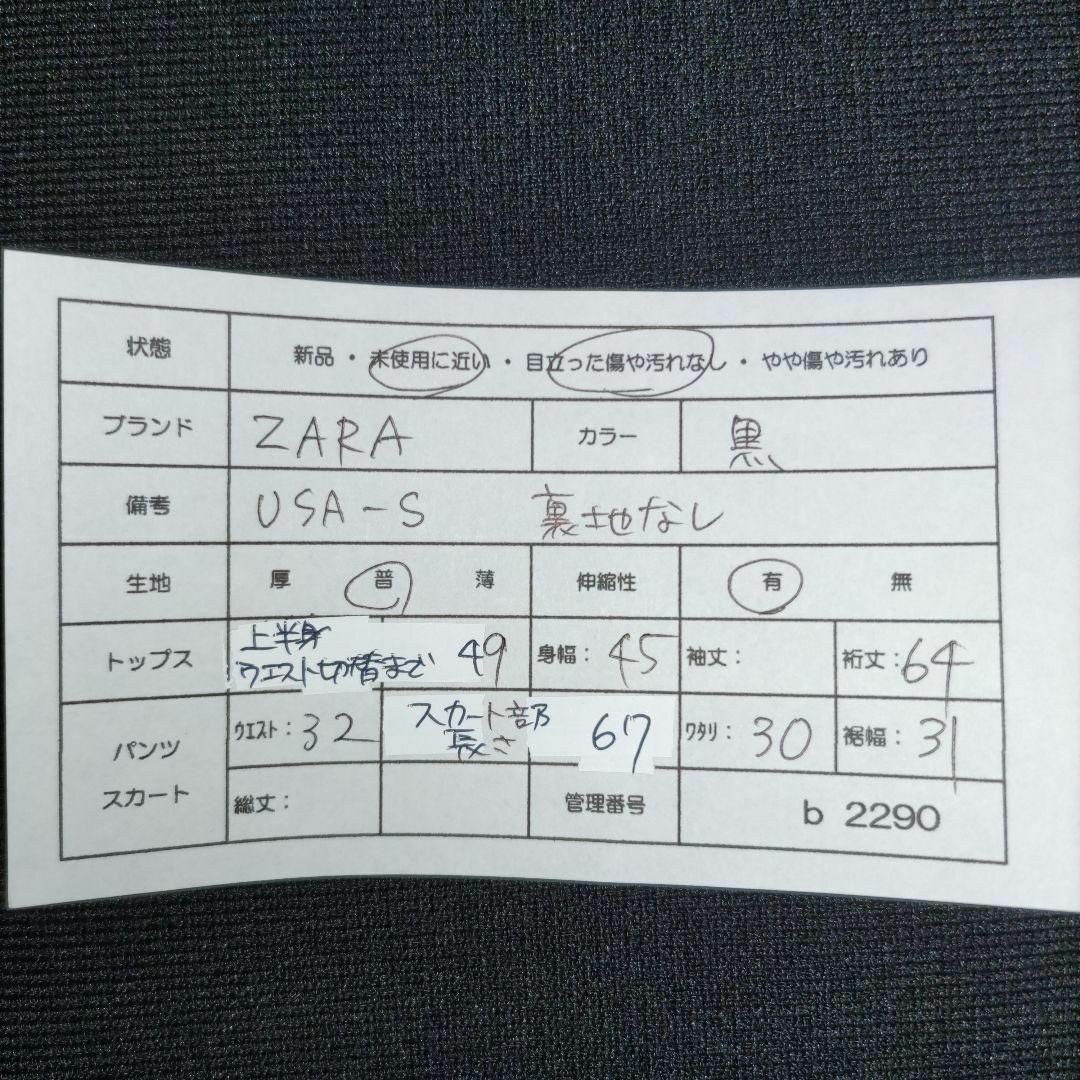 状態 新品・未使用に近い・目立った傷や汚れなし・やや傷や汚れあり
ブランド ZARA カラー 黒
備考 USA-S 裏地なし
生地 厚 普 薄 伸縮性 有 無
トップス 上半身 ウエスト切替まで 49 身幅: 45 袖丈: 裄丈: 64
パンツ スカート ウエスト: 32 スカート部 長さ 67 ワタリ: 30 裾幅: 31
総丈: 管理番号 b 2290